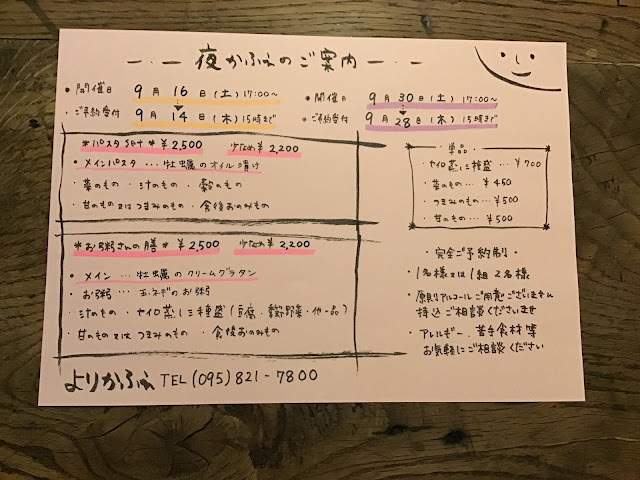 夜かふぇのご案内
・開催日 9月16日(土)17:00〜
・ご予約受付 9月14日(木)15時まで
・開催日 9月30日(土)17:00〜
・ご予約受付 9月28日(木)15時まで
*パスタset* ¥2,500 少なめ¥2,200
・メインパスタ…牡蠣のオイル漬け
・菜のもの・汁のもの・穀のもの
・甘のもの又はつまみのもの・食後おのみもの
*お粥さんの膳* ¥2,500 少なめ¥2,200
・メイン…牡蠣のクリームグラタン
・お粥…玉ネギのお粥
・汁のもの・セイロ蒸し三種盛(豆腐・季節野菜・他一品)
・甘のもの又はつまみのもの・食後おのみもの
単品
・セイロ蒸し三種盛…¥700
・菜のもの…¥450
・つまみのもの…¥500
・甘のもの…¥500
・完全ご予約制・
・1名様又は1組2名様
・原則アルコールご用意ございません
持込ご相談くださいませ
・アレルギー、苦手食材等
お気軽にご相談ください
よりかふぇ TEL (095)821-7800